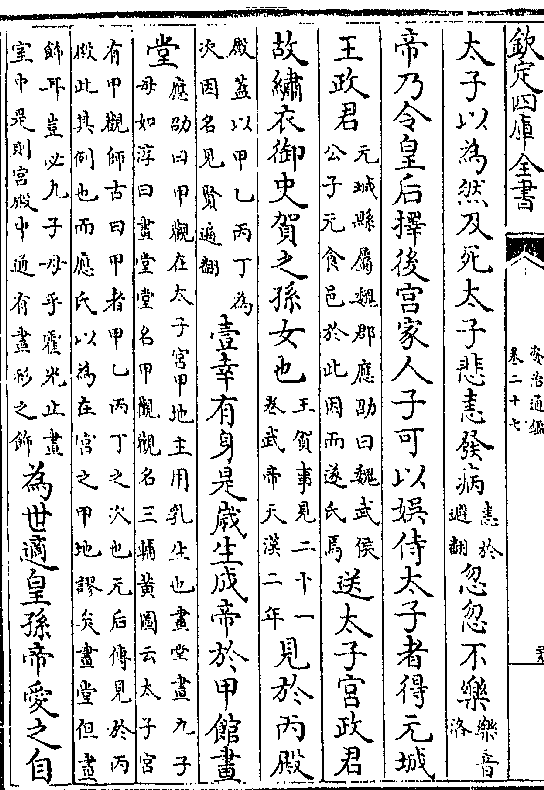 欽定四庫全書
資治通鑑
卷二十七
太子以為然及死太子悲恚發病恚於避翻忽忽不樂樂音洛
帝乃令皇后擇後宮家人子可以娯侍太子者得元城
王政君元城縣屬魏郡應劭曰魏武侯公子元食邑於此因而遂氏焉送太子宮政君
故繡衣御史賀之孫女也王賀事見二十一卷武帝天漢二年見於丙殿
殿蓋以甲乙丙丁為次因名見賢遍翻壹幸有身是歲生成帝於甲館畫
堂應劭曰甲觀在太子宮甲地主用乳生也畫堂畫九子母如淳曰畫堂堂名甲觀觀名三輔黃圖云太子宮
有甲觀師古曰甲者甲乙丙丁之次也元后傳見於丙殿此其例也而應氏以為在宮之甲地謬矣畫堂但畫
飾耳豈必九子母乎霍光止畫室中是則宮殿中通有畫彩之飾為世適皇孫帝愛之自